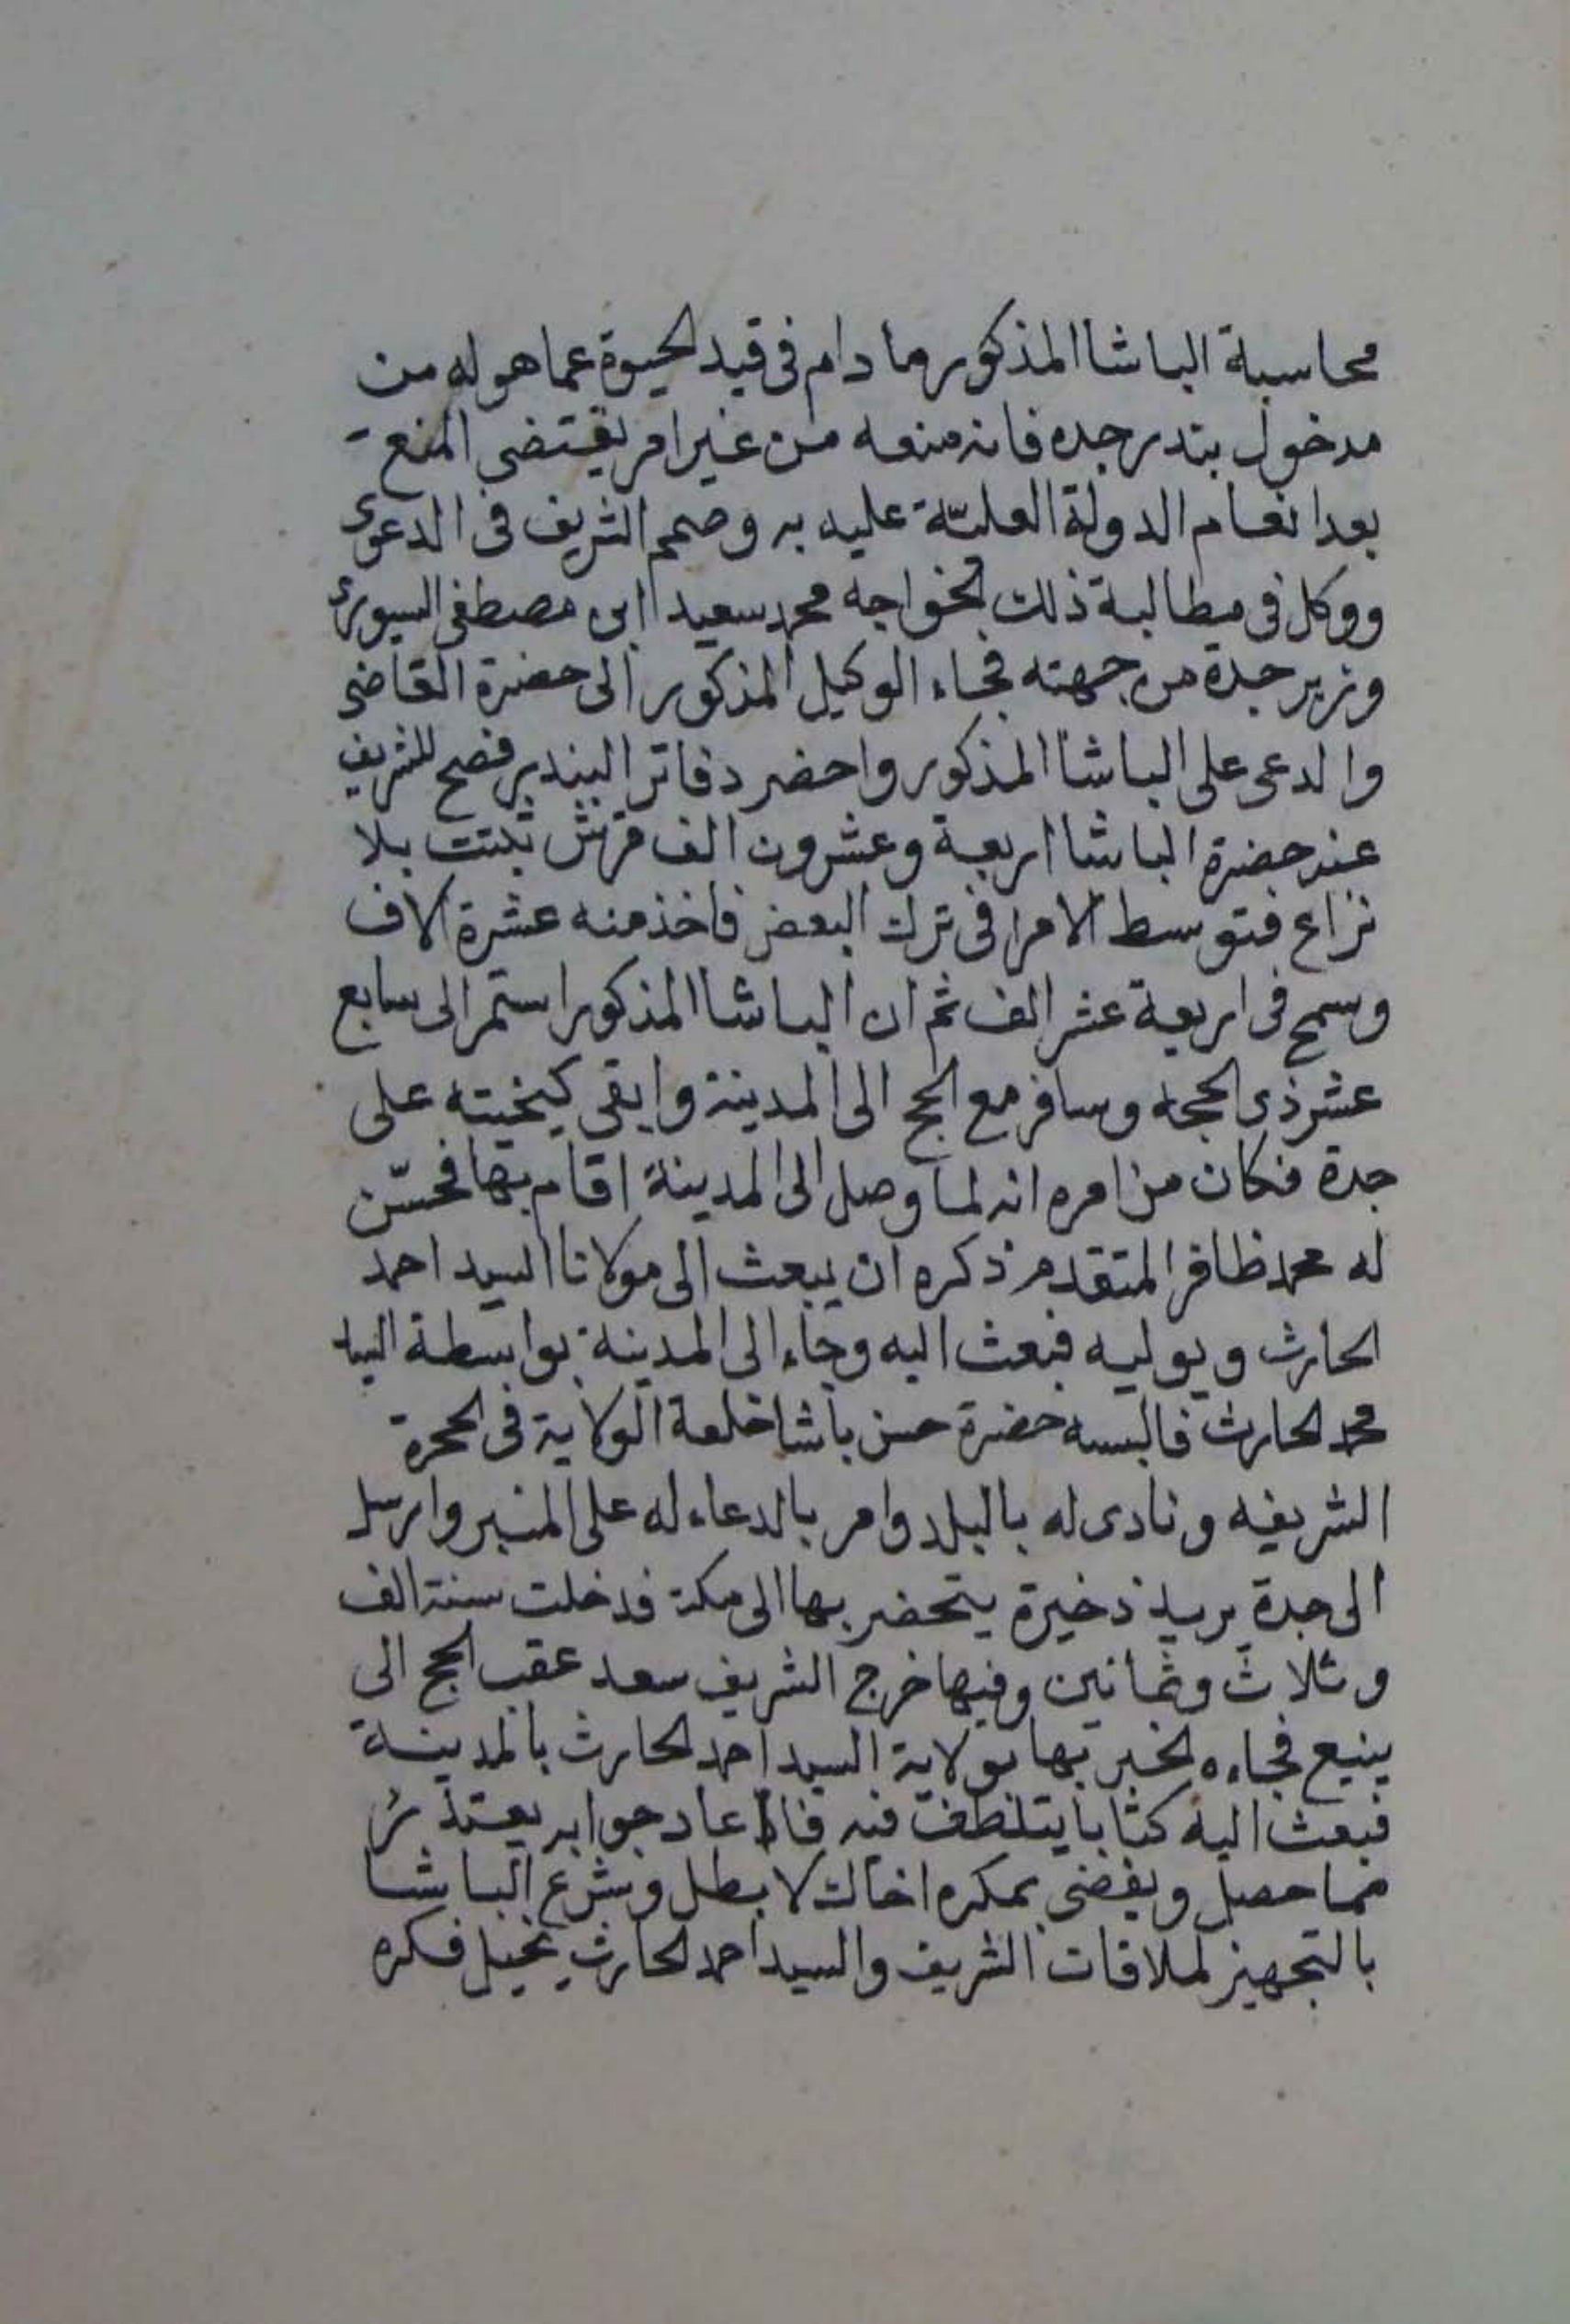 محاسبة الباشا المذكور ما دام فى قيد الحيوة عما هو له من
مدخول بندر جده فانه منعه من غير امر يقتضى المنع
بعد انعام الدولة العليّة عليه به وصمم الشريف فى الدعوى
ووكل فى مطالبة ذلك الخواجه محمد سعيد ابن مصطفى السيورى
وزير جدة من جهته فجاء الوكيل المذكور الى حضرة القاضى
والدعى على الباشا المذكور واحضر دفاتر البندر فصح للشريف
عند حضرة الباشا اربعة وعشرون الف قرش ثبتت بلا
نزاع فتوسط الامرا فى ترك البعض فاخذ منه عشرة الاف
وسمح فى اربعة عشر الف ثم ان الباشا المذكور استمر الى سابع
عشر ذى الحجه وسافر مع الحج الى المدينة وابقى كيخيته على
جدة فكان من امره انه لما وصل الى المدينة اقام بها فحسّن
له محمد ظافر المتقدم ذكره ان يبعث الى مولانا السيد احمد
الحارث ويوليه فبعث اليه وجاء الى المدينة بواسطة السيد
محمد الحارث فالبسه حضرة حسن باشا خلعة الولاية فى الحجرة
الشريفه ونادى له بالبلد وامر بالدعاء له على المنبر وارسل
الى جدة يريد ذخيرة يتحضر بها الى مكة فدخلت سنة الف
وثلاث وثمانين وفيها خرج الشريف سعد عقب الحج الى
ينبع فجاءه الخبر بها بولاية السيد احمد الحارث بالمدينة
فبعث اليه كتابا يتلطف فيه فاعاد جوابه يعتذر
مما حصل ويفضى بمكره اخاك لا بطل وشرع الباشا
بالتجهيز لملاقات الشريف والسيد احمد الحارث فكره